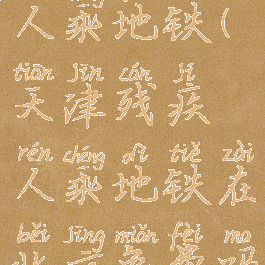 人乘地铁(
tiān jīn cán jí
天津残疾
rén chéng dì tiě zài
人乘地铁在
běi jīng miǎn fèi ma
北京免费吗